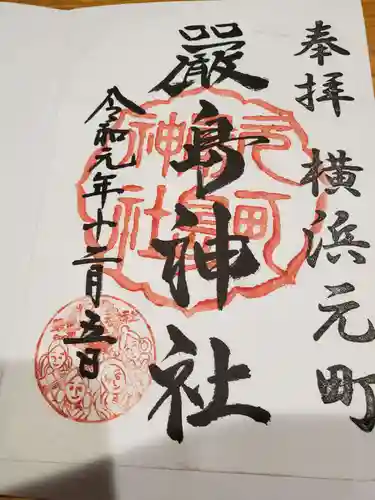 奉拝 横浜元町
嚴島神社
令和元年十二月五日
元町
嚴島
神社